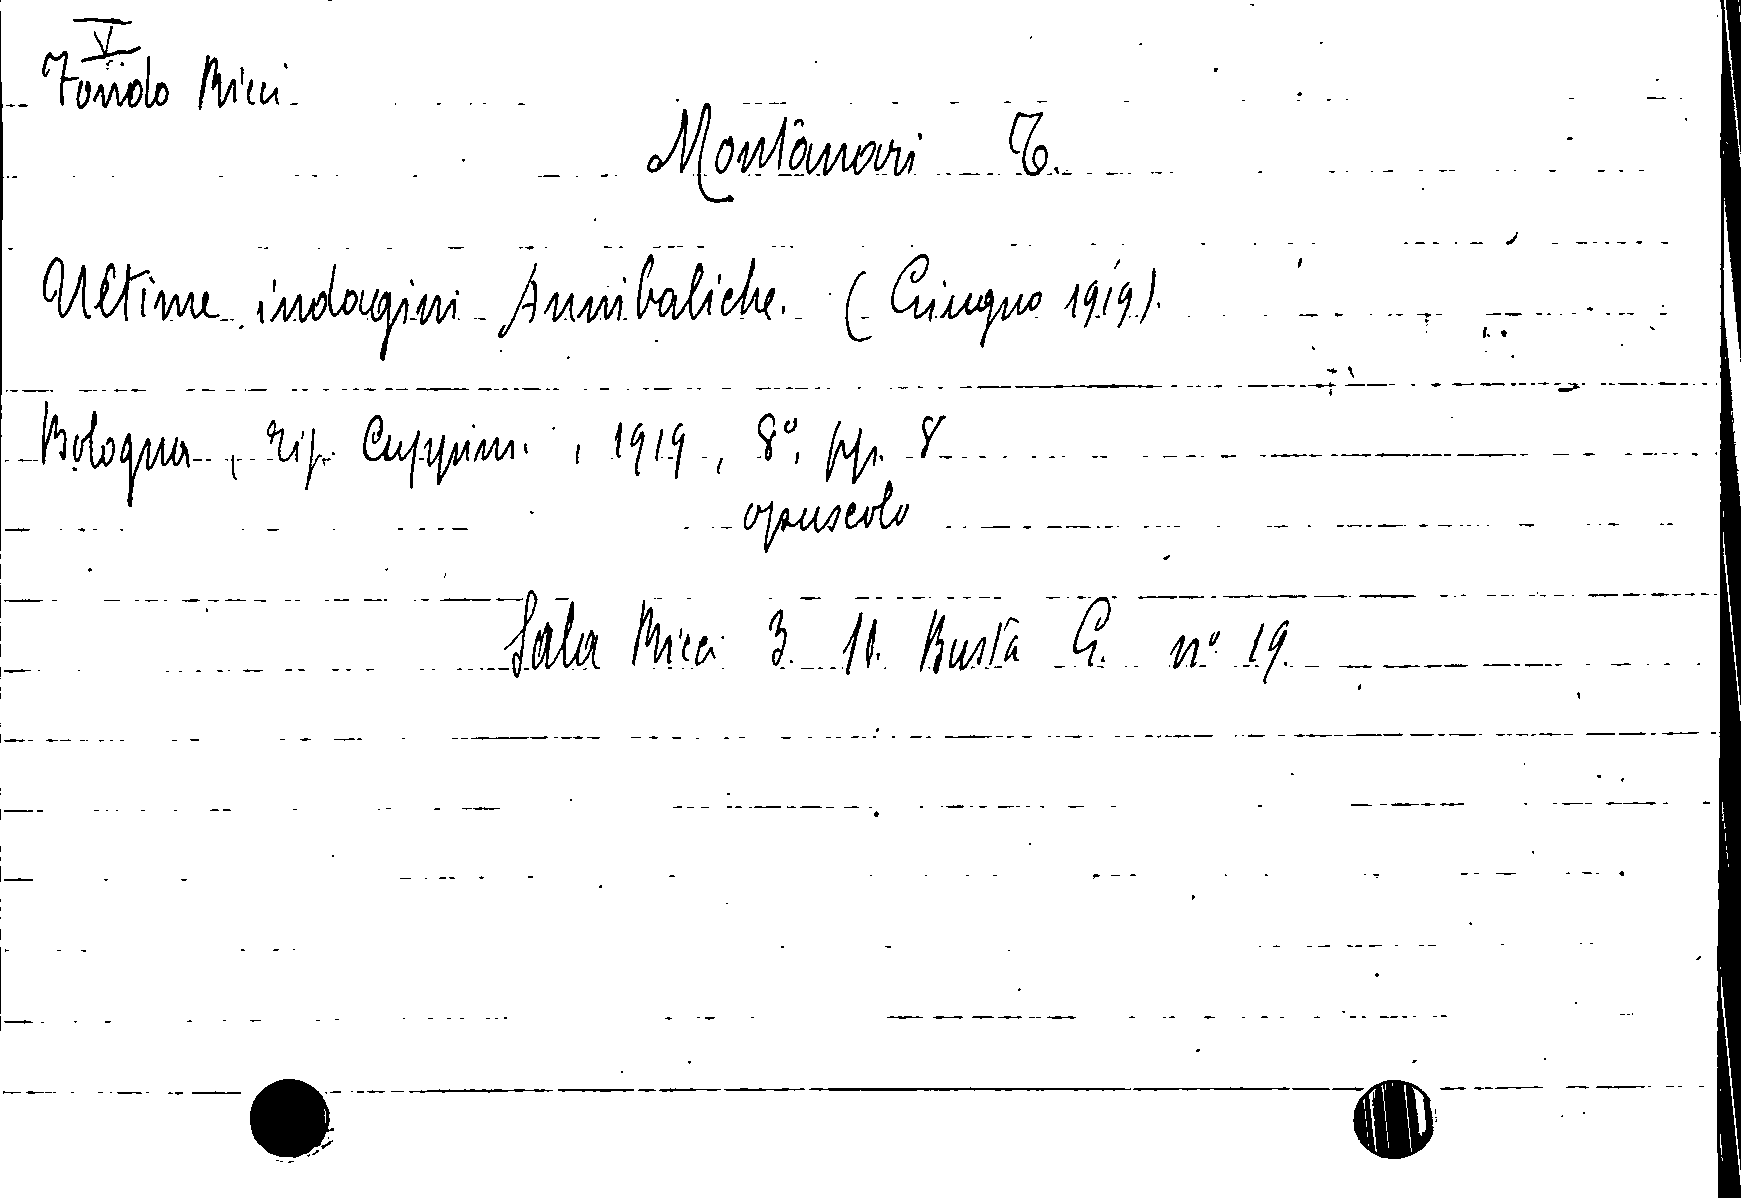 V
Fondo Ricci
Montanari T.
Ultime indagini Annibaliche. (Giugno 1919).
Bologna, tip. Cuppini, 1919, 8°, pp. 8
opuscolo
Sala Ricci 3. 11. Busta G. n° 19.